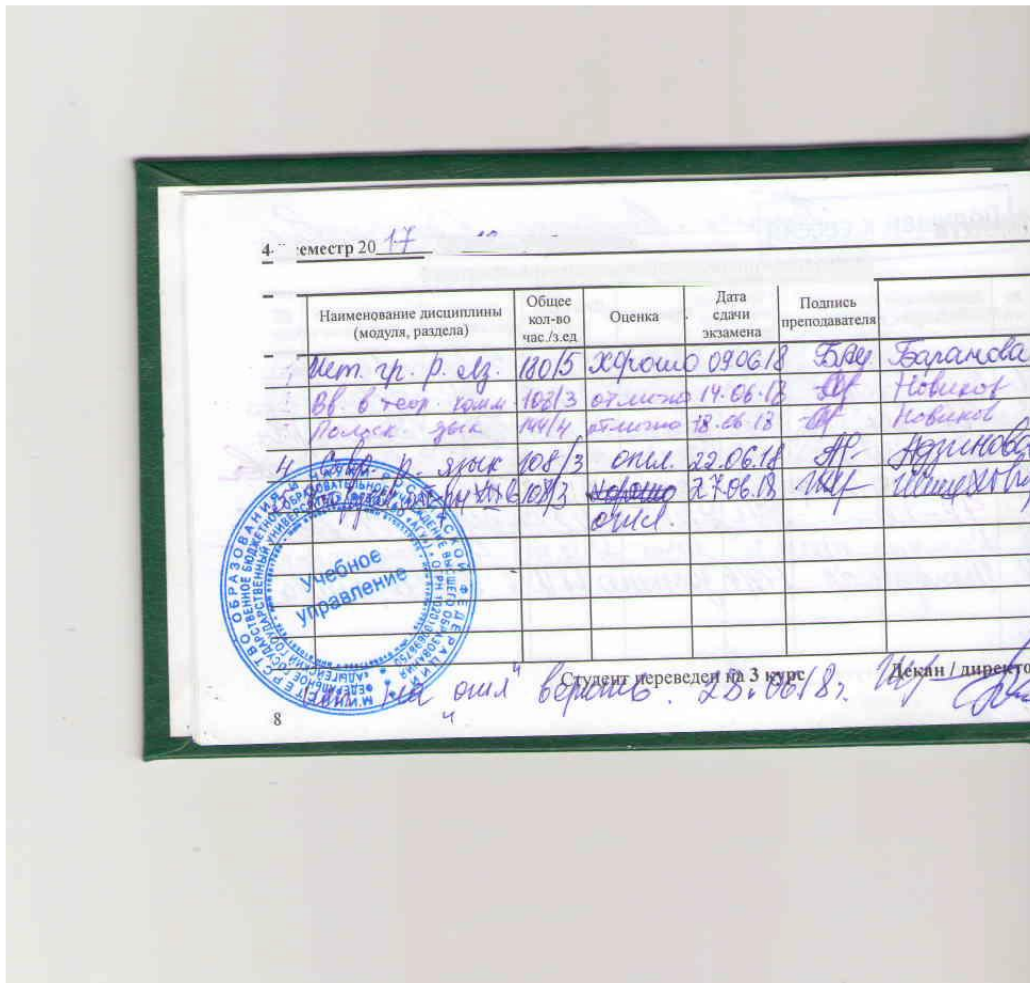 4- еместр 20 17
Наименование дисциплины (модуля, раздела) Общее кол-во час./з.ед Оценка Дата сдачи экзамена Подпись преподавателя
Ист. гр. р. яз. 180/5 хорошо 09.06.18 Баранова
Вв. в теор. комм. 108/3 отлично 14.06.18 Новиков
Польск. язык 144/4 отлично 18.06.18 Новиков
4 Совр. р. язык 108/3 отл. 22.06.18
108/3 хорошо 27.06.18
отл.
Учебное
управление
Студент переведен на 3 курс Декан / директо
на "отл" верить. 28.06.18г.
8